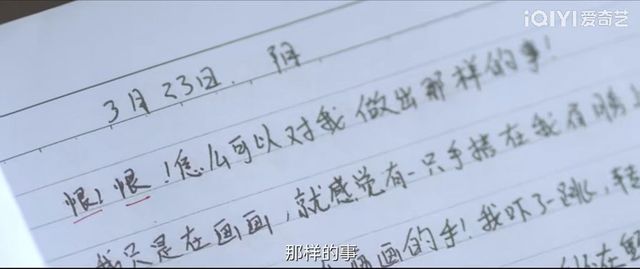 iQIYI 爱奇艺
3月23日. 阴
恨! 恨! 怎么可以对我做出那样的事!
我只是在画画,就感觉有一只手搭在我肩膀
画的手!我吓了一跳,转
那样的事